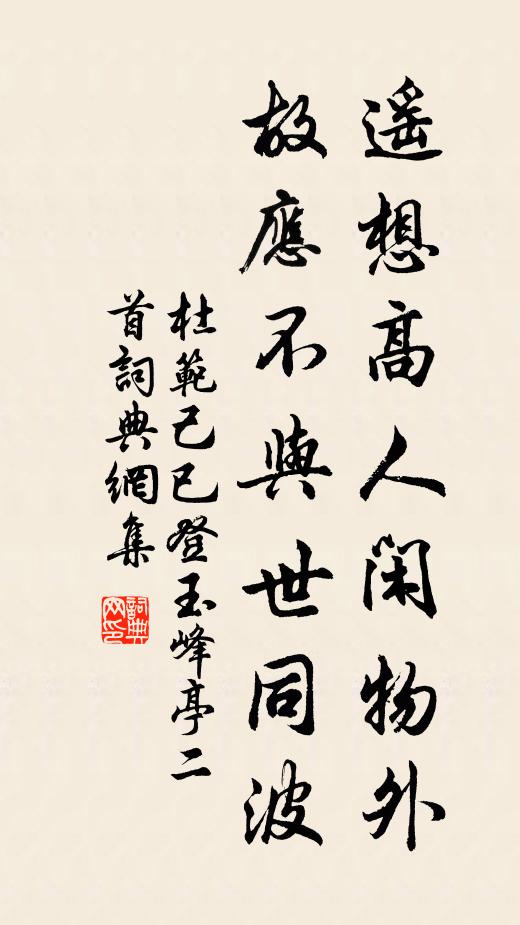 遥想高人閑物外
故應不與世同波
杜範己巳登玉峰亭二
首詞典網集
詞典
网印